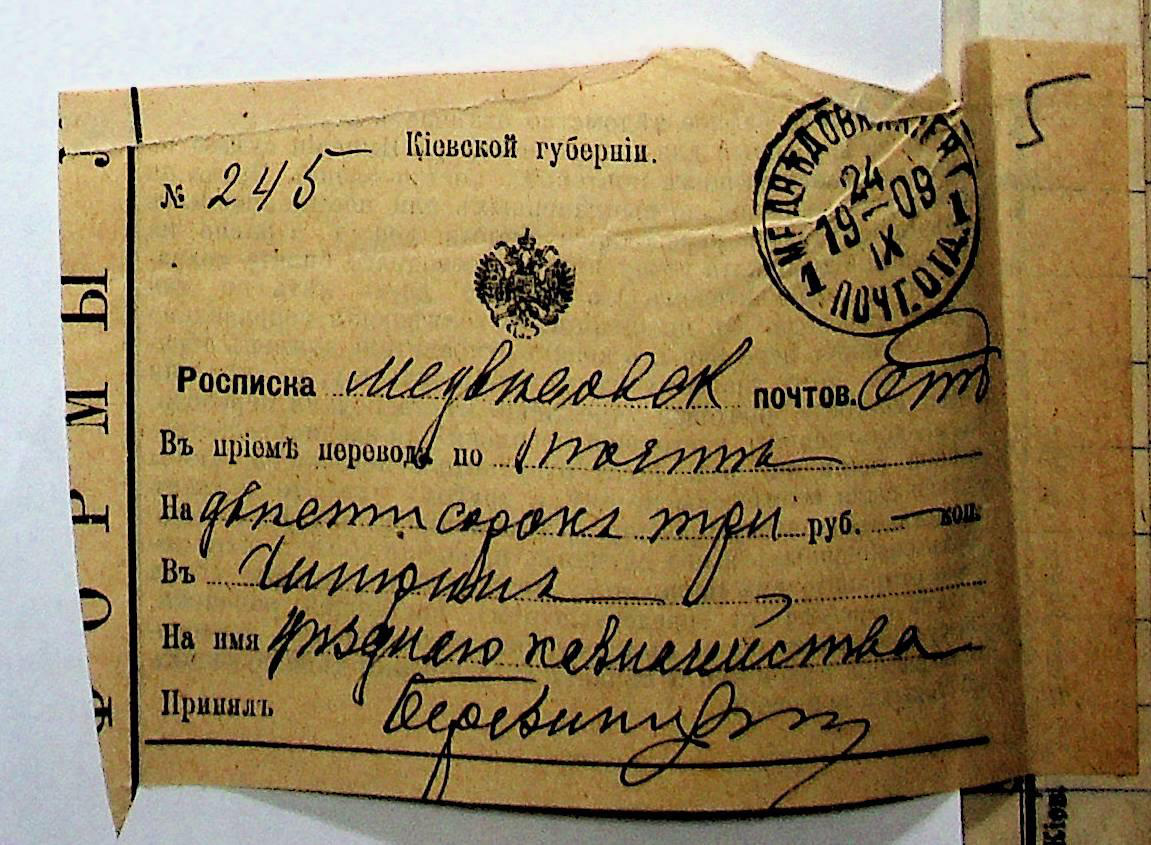 Кіевской губерніи.
№ 245
МЕДВѢДОВКА
24
19 – 09
IX
1 ПОЧТ. ОТД. 1
5
Росписка Медвѣдовск почтов. Отд
Въ пріемѣ перевода по почтѣ
На двѣсти сорокъ три руб. — коп.
Въ Чигиринъ
На имя уѣзднаго казначейства
Принялъ
ФОРМЫ
Кіев